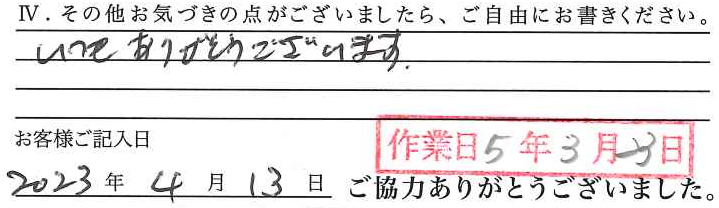 Ⅳ．その他お気づきの点がございましたら、ご自由にお書きください。
いつもありがとうございます。
お客様ご記入日
作業日5年3月3日
2023年4月13日 ご協力ありがとうございました。